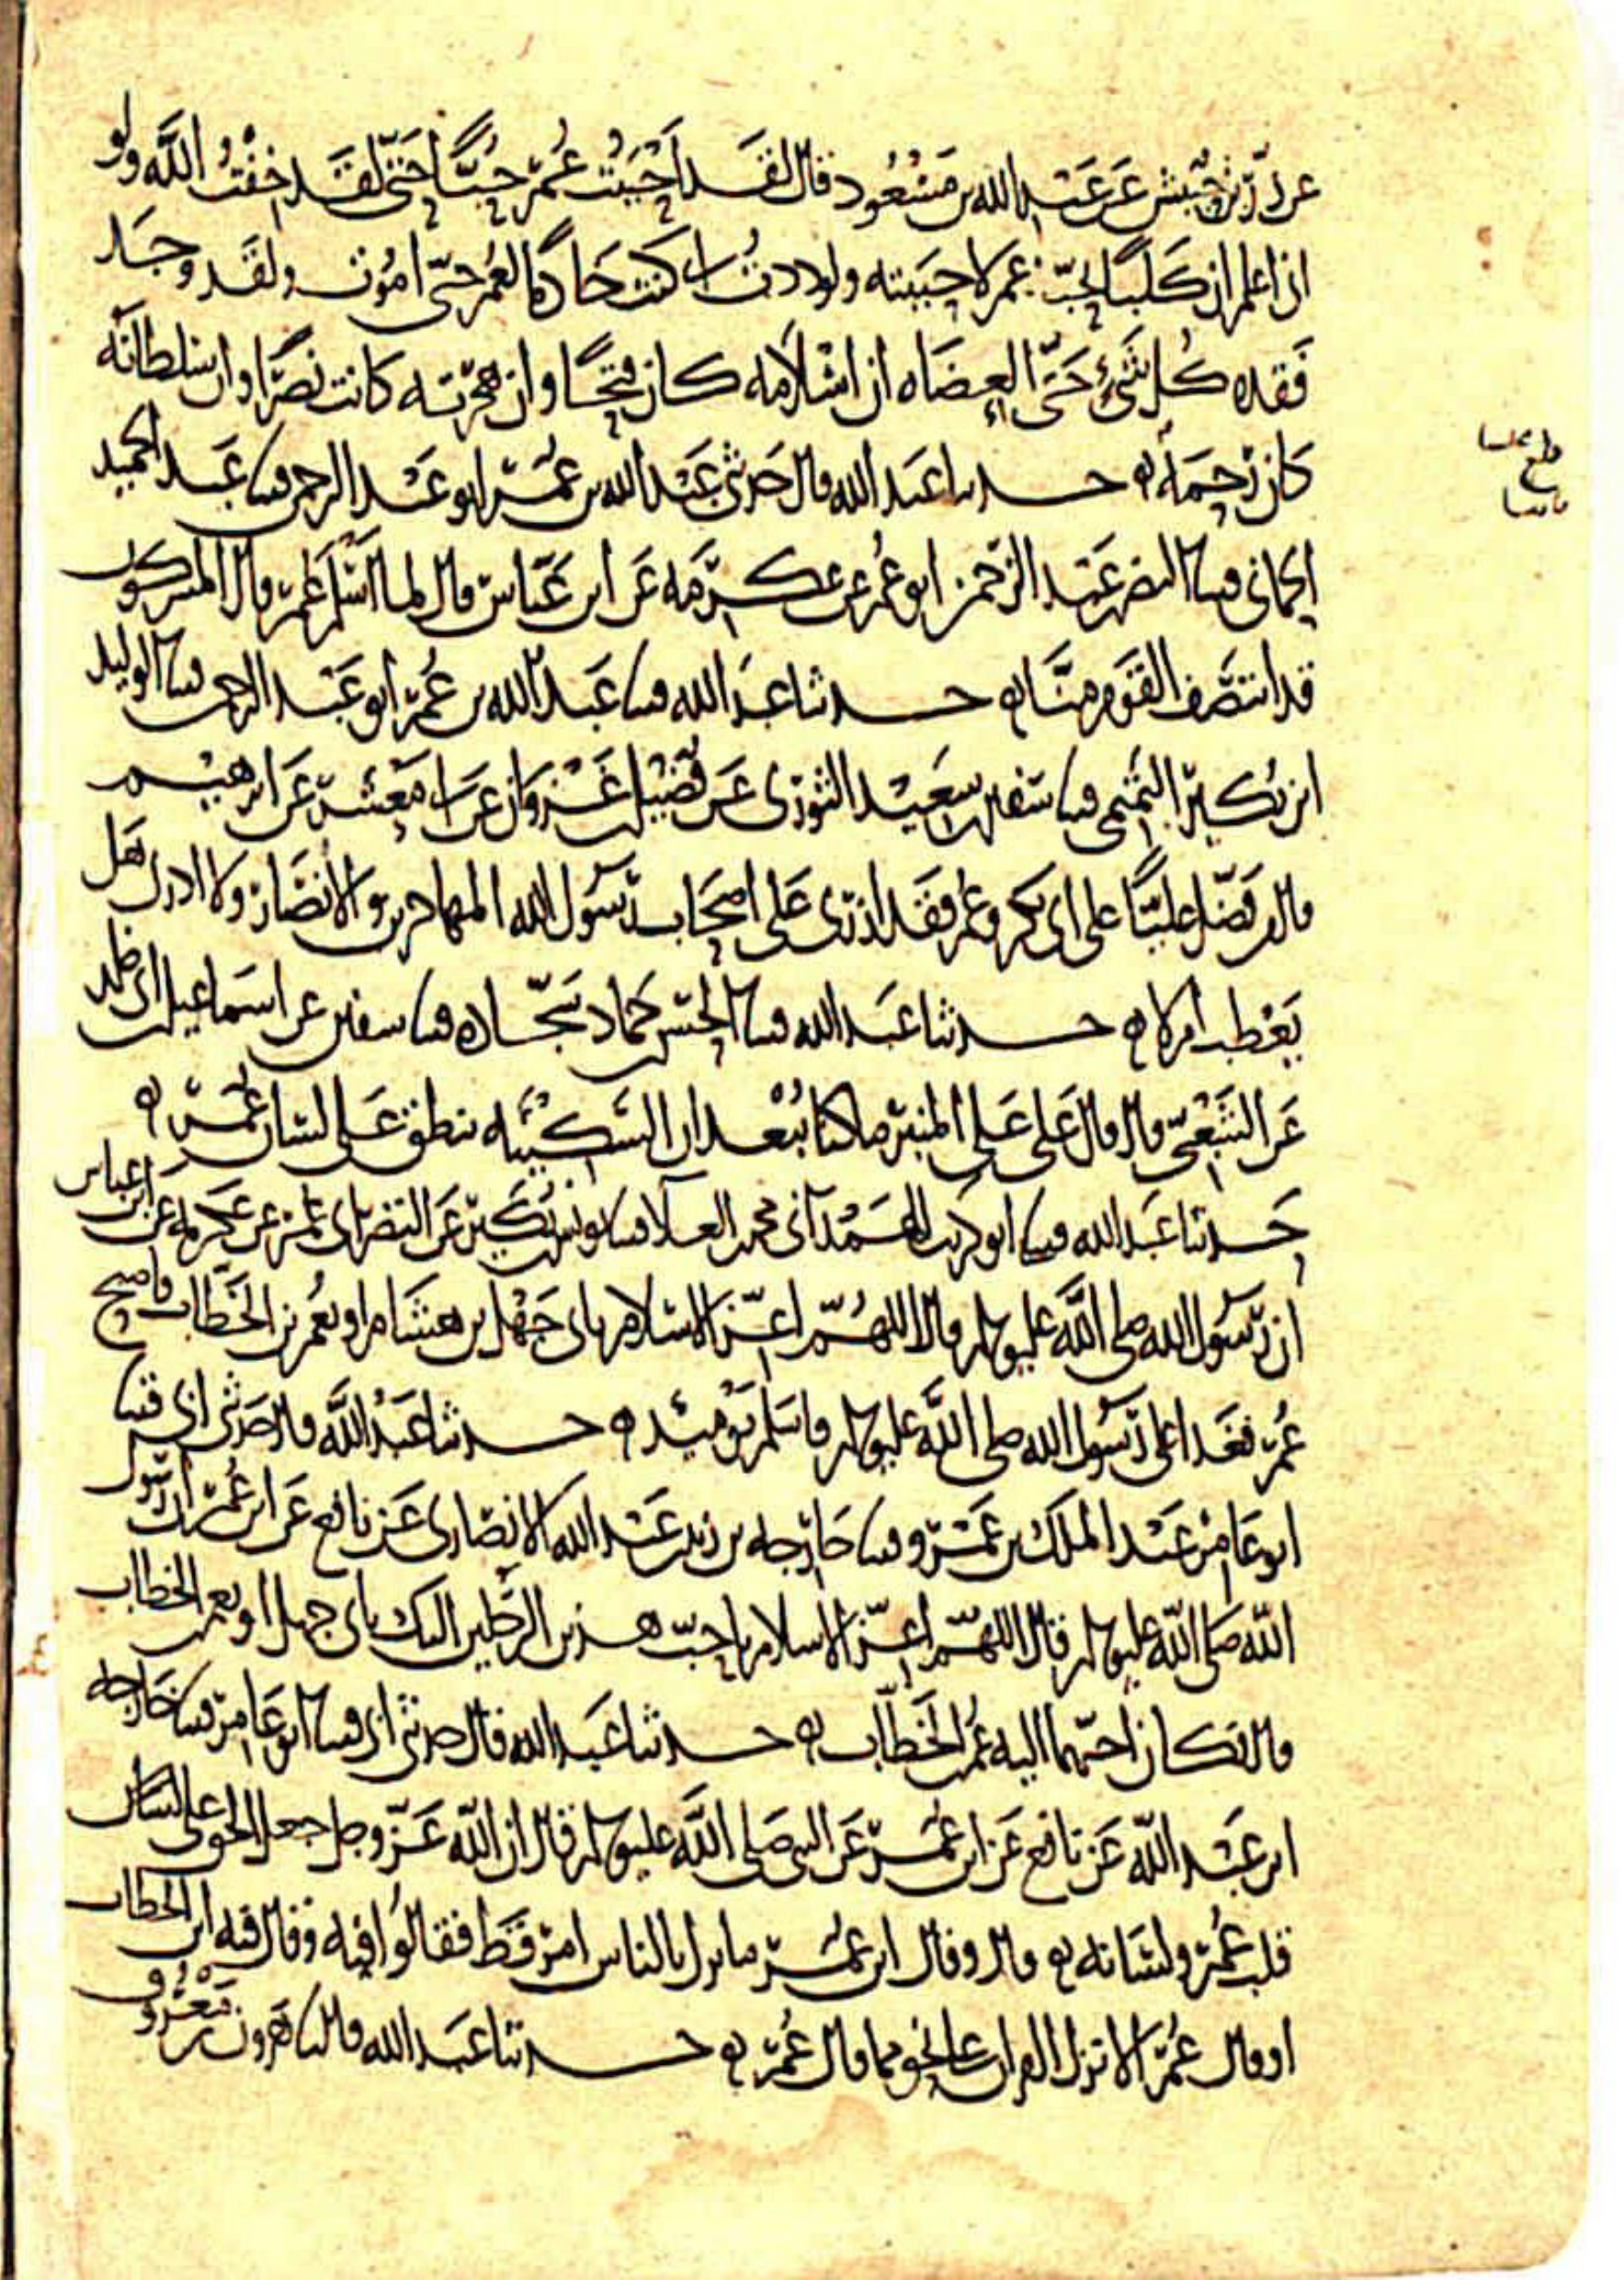 عن زر بن حبيش عن عبد الله بن مسعود قال لقد احببت عمر حبا حتى لقد خفت الله ولو
اني اعلم ان كلبا يحب عمر لاحببته ولوددت اني كنت خادما لعمر حتى اموت ولقد وجد
فقده كل شيء حتى العضاه ان اسلامه كان فتحا وان هجرته كانت نصرا وان سلطانه
كان رحمة ه حدثنا عبد الله قال حدثني عبد الله بن عمر ابو عبد الرحمن قثنا عبد الحميد
الحماني قثنا النضر بن عبد الرحمن ابو عمر عن عكرمه عن ابن عباس قال لما اسلم عمر قال المشركون
قد انتصف القوم منا ه حدثنا عبد الله قثنا عبد الله بن عمر ابو عبد الرحمن قثنا الوليد
ابن بكير التميمي قثنا سفين بن سعيد الثوري عن فضيل بن غزوان عن ابي معشر عن ابرهيم
قال من فضل عليا على ابي بكر وعمر فقد ازرى على اصحاب رسول الله المهاجرين والانصار ولا ادري هل
يعطب ام لا ه حدثنا عبد الله قثنا الحسن بن حماد سجاده قثنا سفين عن اسماعيل بن ابي خلد
عن الشعبي قال قال علي على المنبر ما كنا نبعد ان السكينه تنطق على لسان عمر ه
حدثنا عبد الله قثنا ابو كريب الهمداني محمد بن العلا قثنا يونس بن بكير عن النضر ابي عمر عن عكرمه عن ابن عباس
ان رسول الله صلى الله عليه وسلم قال اللهم اعز الاسلام بابي جهل بن هشام او بعمر بن الخطاب فاصبح
عمر فغدا على رسول الله صلى الله عليه وسلم فاسلم يومئذ ه حدثنا عبد الله قال حدثني ابي قثنا
ابو عامر عبد الملك بن عمرو قثنا خارجه بن زيد بن عبد الله الانصاري عن نافع عن ابن عمر ان رسول
الله صلى الله عليه وسلم قال اللهم اعز الاسلام باحب هذين الرجلين اليك بابي جهل او بعمر بن الخطاب
قال فكان احبهما اليه عمر بن الخطاب ه حدثنا عبد الله قال حدثني ابي قثنا ابو عامر قثنا خارجه
ابن عبد الله عن نافع عن ابن عمر عن النبي صلى الله عليه وسلم قال ان الله عز وجل جعل الحق على لسان
قلب عمر ولسانه ه قال وقال ابن عمر ما نزل بالناس امر قط فقالوا فيه وقال فيه ابن الخطاب
او قال عمر الا نزل القران على نحو مما قال عمر ه حدثنا عبد الله قال ثنا هرون بن معروف